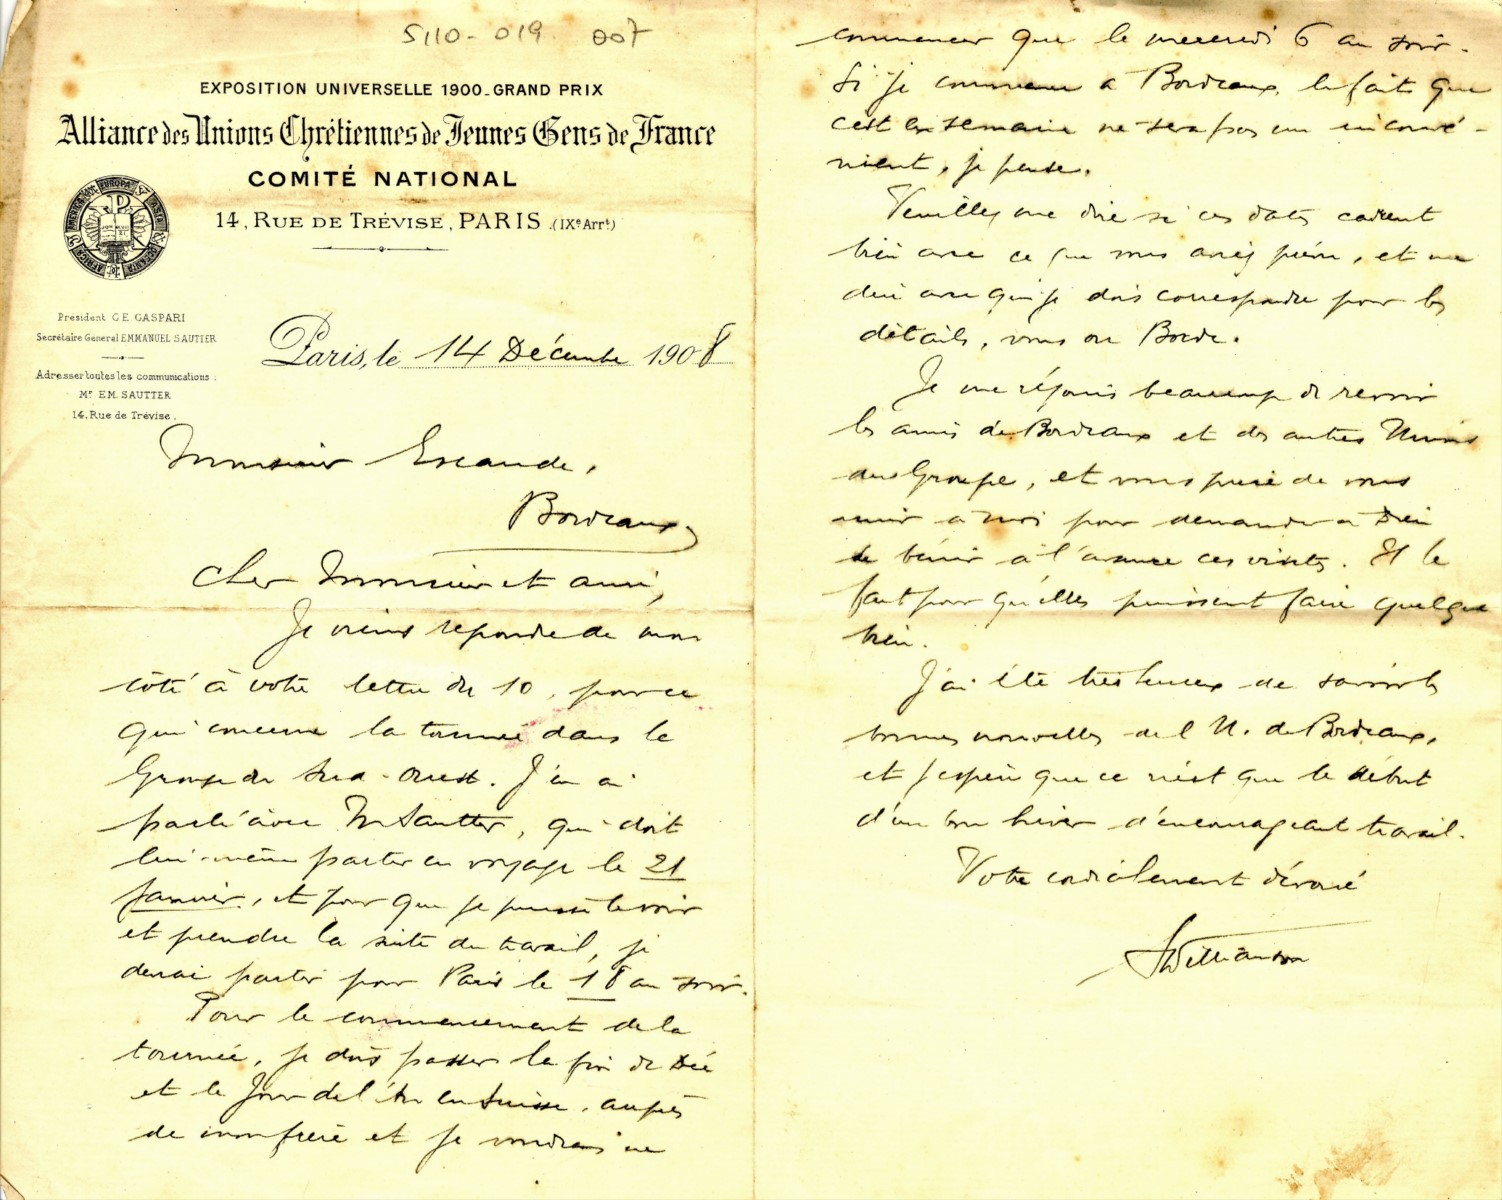 5110-019 007
EXPOSITION UNIVERSELLE 1900_GRAND PRIX
Alliance des Unions Chrétiennes de Jeunes Gens de France
COMITÉ NATIONAL
14, RUE DE TRÉVISE, PARIS.(IXe Arrt)
EUROPA
ASIA
OCEANIA
AFRICA
AMERICA
Président G.E GASPARI
Secrétaire Général EMMANUEL SAUTTER
Adresser toutes les communications :
Mr EM. SAUTTER
14, Rue de Trévise.
Paris, le 14 Décembre 1908
Monsieur Escande,
Bordeaux
Cher Monsieur et ami,
Je viens répondre de mon
côté à votre lettre du 10, pour ce
qui concerne la tournée dans le
Groupe du Sud-Ouest. J'en ai
parlé avec M Sautter, qui doit
lui-même partir en voyage le 21
Janvier, et pour que je puisse le voir
et prendre la suite du travail, je
devrai partir pour Paris le 18 au soir.
Pour le commencement de la
tournée, je dois passer la fin de Déc
et le Jour de l'An en Suisse, auprès
de mon frère et je voudrais ne
commencer que le mercredi 6 au soir.
Si je commence à Bordeaux, le fait que
c'est en semaine ne sera pas un inconvé-
nient, je pense.
Veuillez me dire si ces dates cadrent
bien avec ce que vous aviez prévu, et me
dire avec qui je dois correspondre pour les
détails, vous ou Borde.
Je me réjouis beaucoup de revoir
les amis de Bordeaux et des autres Unions
du Groupe, et vous prie de vous
unir à moi pour demander à Dieu
de bénir à l'avance ces visites. Il le
faut pour qu'elles puissent faire quelque
bien.
J'ai été très heureux de savoir les
bonnes nouvelles de l'U. de Bordeaux,
et j'espère que ce n'est que le début
d'un bon hiver d'encourageant travail.
Votre cordialement dévoué
Williamson